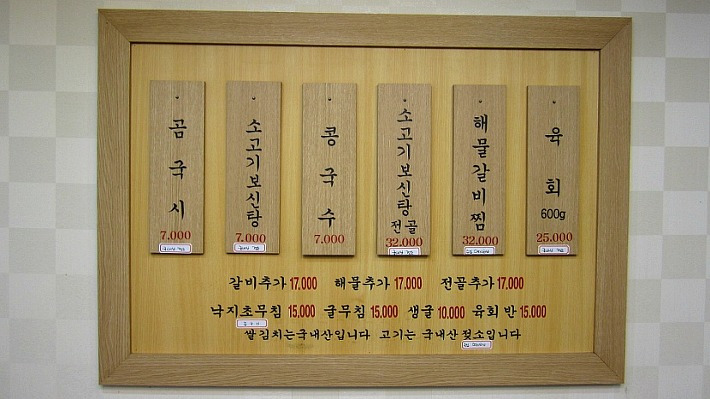 곰국시
7,000
소고기보신탕
7,000
콩국수
7,000
소고기보신탕
전골
32,000
해물갈비찜
32,000
육회
600g
25.000
갈비추가 17,000 해물추가 17,000 전골추가 17,000
낙지초무침 15,000 굴무침 15,000 생굴 10.000 육회 반 15.000
쌀김치는국내산입니다 고기는 국내산 젖소입니다